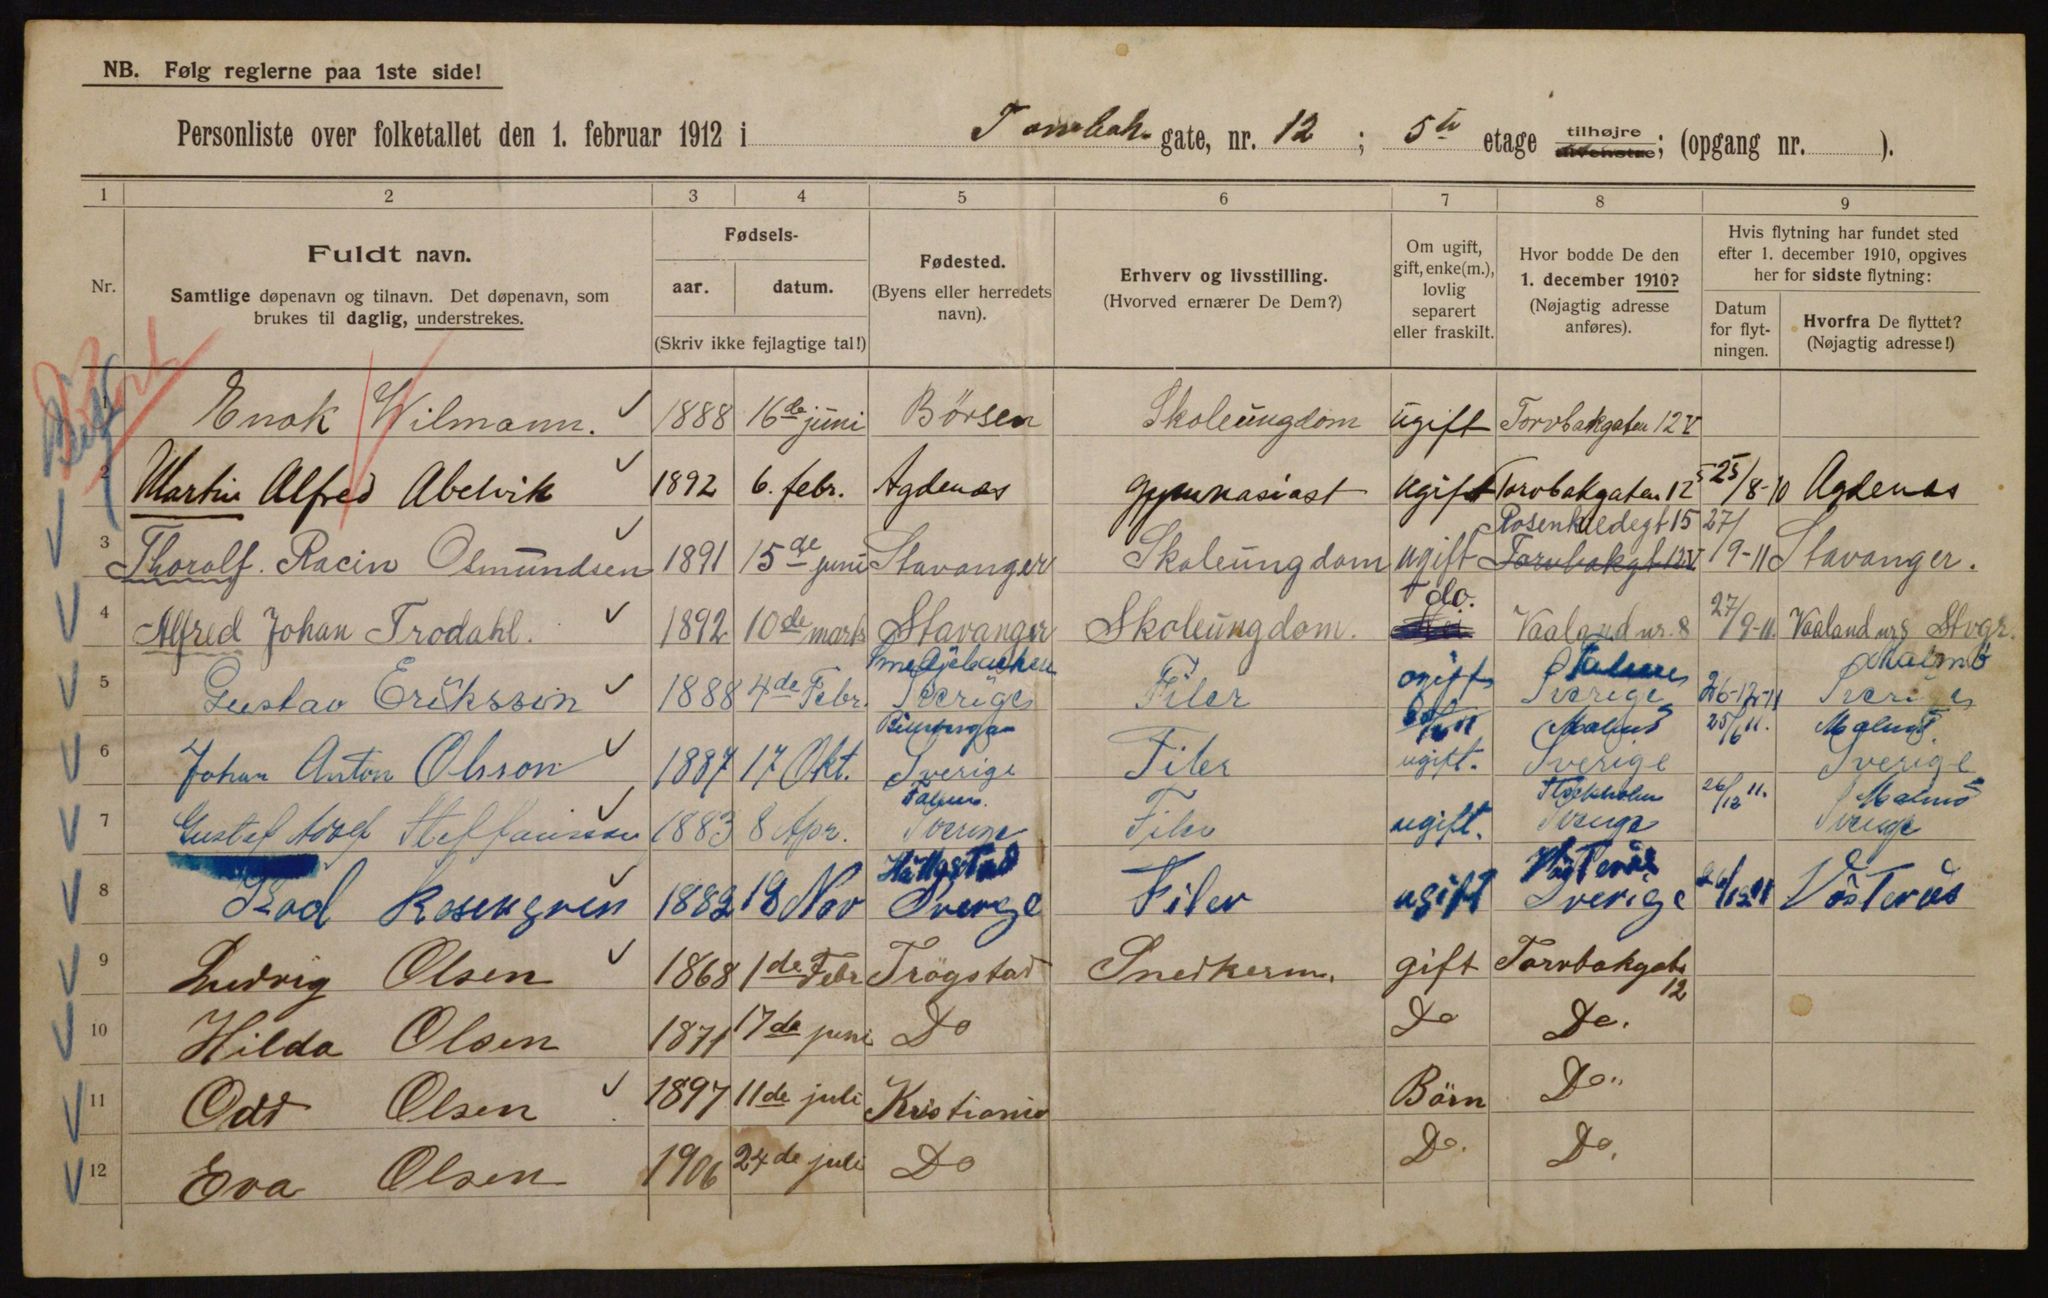 NB. Følg reglerne paa 1ste side!
Personliste over folketallet den 1. februar 1912 i Torvbak gate, nr. 12 ; 5te etage tilhøjre tilvenstre; (opgang nr. ).
1 2 3 4 5 6 7 8 9
Nr.
Fuldt navn.
Samtlige døpenavn og tilnavn. Det døpenavn, som
brukes til daglig, understrekes.
Fødsels-
aar. datum.
(Skriv ikke fejlagtige tal!)
Fødested.
(Byens eller herredets
navn).
Erhverv og livsstilling.
(Hvorved ernærer De Dem?)
Om ugift,
gift, enke(m.),
lovlig
separert
eller fraskilt.
Hvor bodde De den
1. december 1910?
(Nøjagtig adresse
anføres).
Hvis flytning har fundet sted
efter 1. december 1910, opgives
her for sidste flytning:
Datum
for flyt-
ningen.
Hvorfra De flyttet?
(Nøjagtig adresse!)
1 Enok Wilmann. 1888 16de juni Börsen Skoleungdom ugift Torvbakgaten 12 V
2 Martin Alfred Abelvik 1892 6. febr. Agdenes gymnasiast ugift Torvbakgaten 12 5 25/8-10 Agdenes
Rosenkildegt 15
3 Thorolf Racin Osmundsen 1891 15de juni Stavanger Skoleungdom ugift Torvbakgt 12 V 27/9-11 Stavanger.
4 Alfred Johan Trodahl. 1892 10de marts Stavanger Skoleungdom. do. Vaaland nr. 8 27/9-11. Vaaland nr 8 Stvgr.
Smedjebacken Malmö
5 Gustav Eriksson 1888 4de Febr. Sverige Filer ugift Sverige 26-12-11 Sverige
Malmö Malmö
6 Johan Anton Olsson 1887 17 Okt. Sverige Filer ugift. Sverige 25/6 11. Sverige
Falun. Stockholm Malmö
7 Gustaf Steffansson 1883 8 Apr. Sverige Filer ugift. Sverige 26/12 11. Sverige
Västerås
8 Rosengren 1882 18 Nov Sverige Filer ugift Sverige 26/12 11 Västerås
9 Ludvig Olsen 1868 1de Febr Trögstad Snedkerm. gift Torvbakgate 12
10 Hilda Olsen 1871 17de juni Do Do Do.
11 Odd Olsen 1897 11de juli Kristiania Börn Do"
12 Eva Olsen 1906 24de juli Do Do. Do.